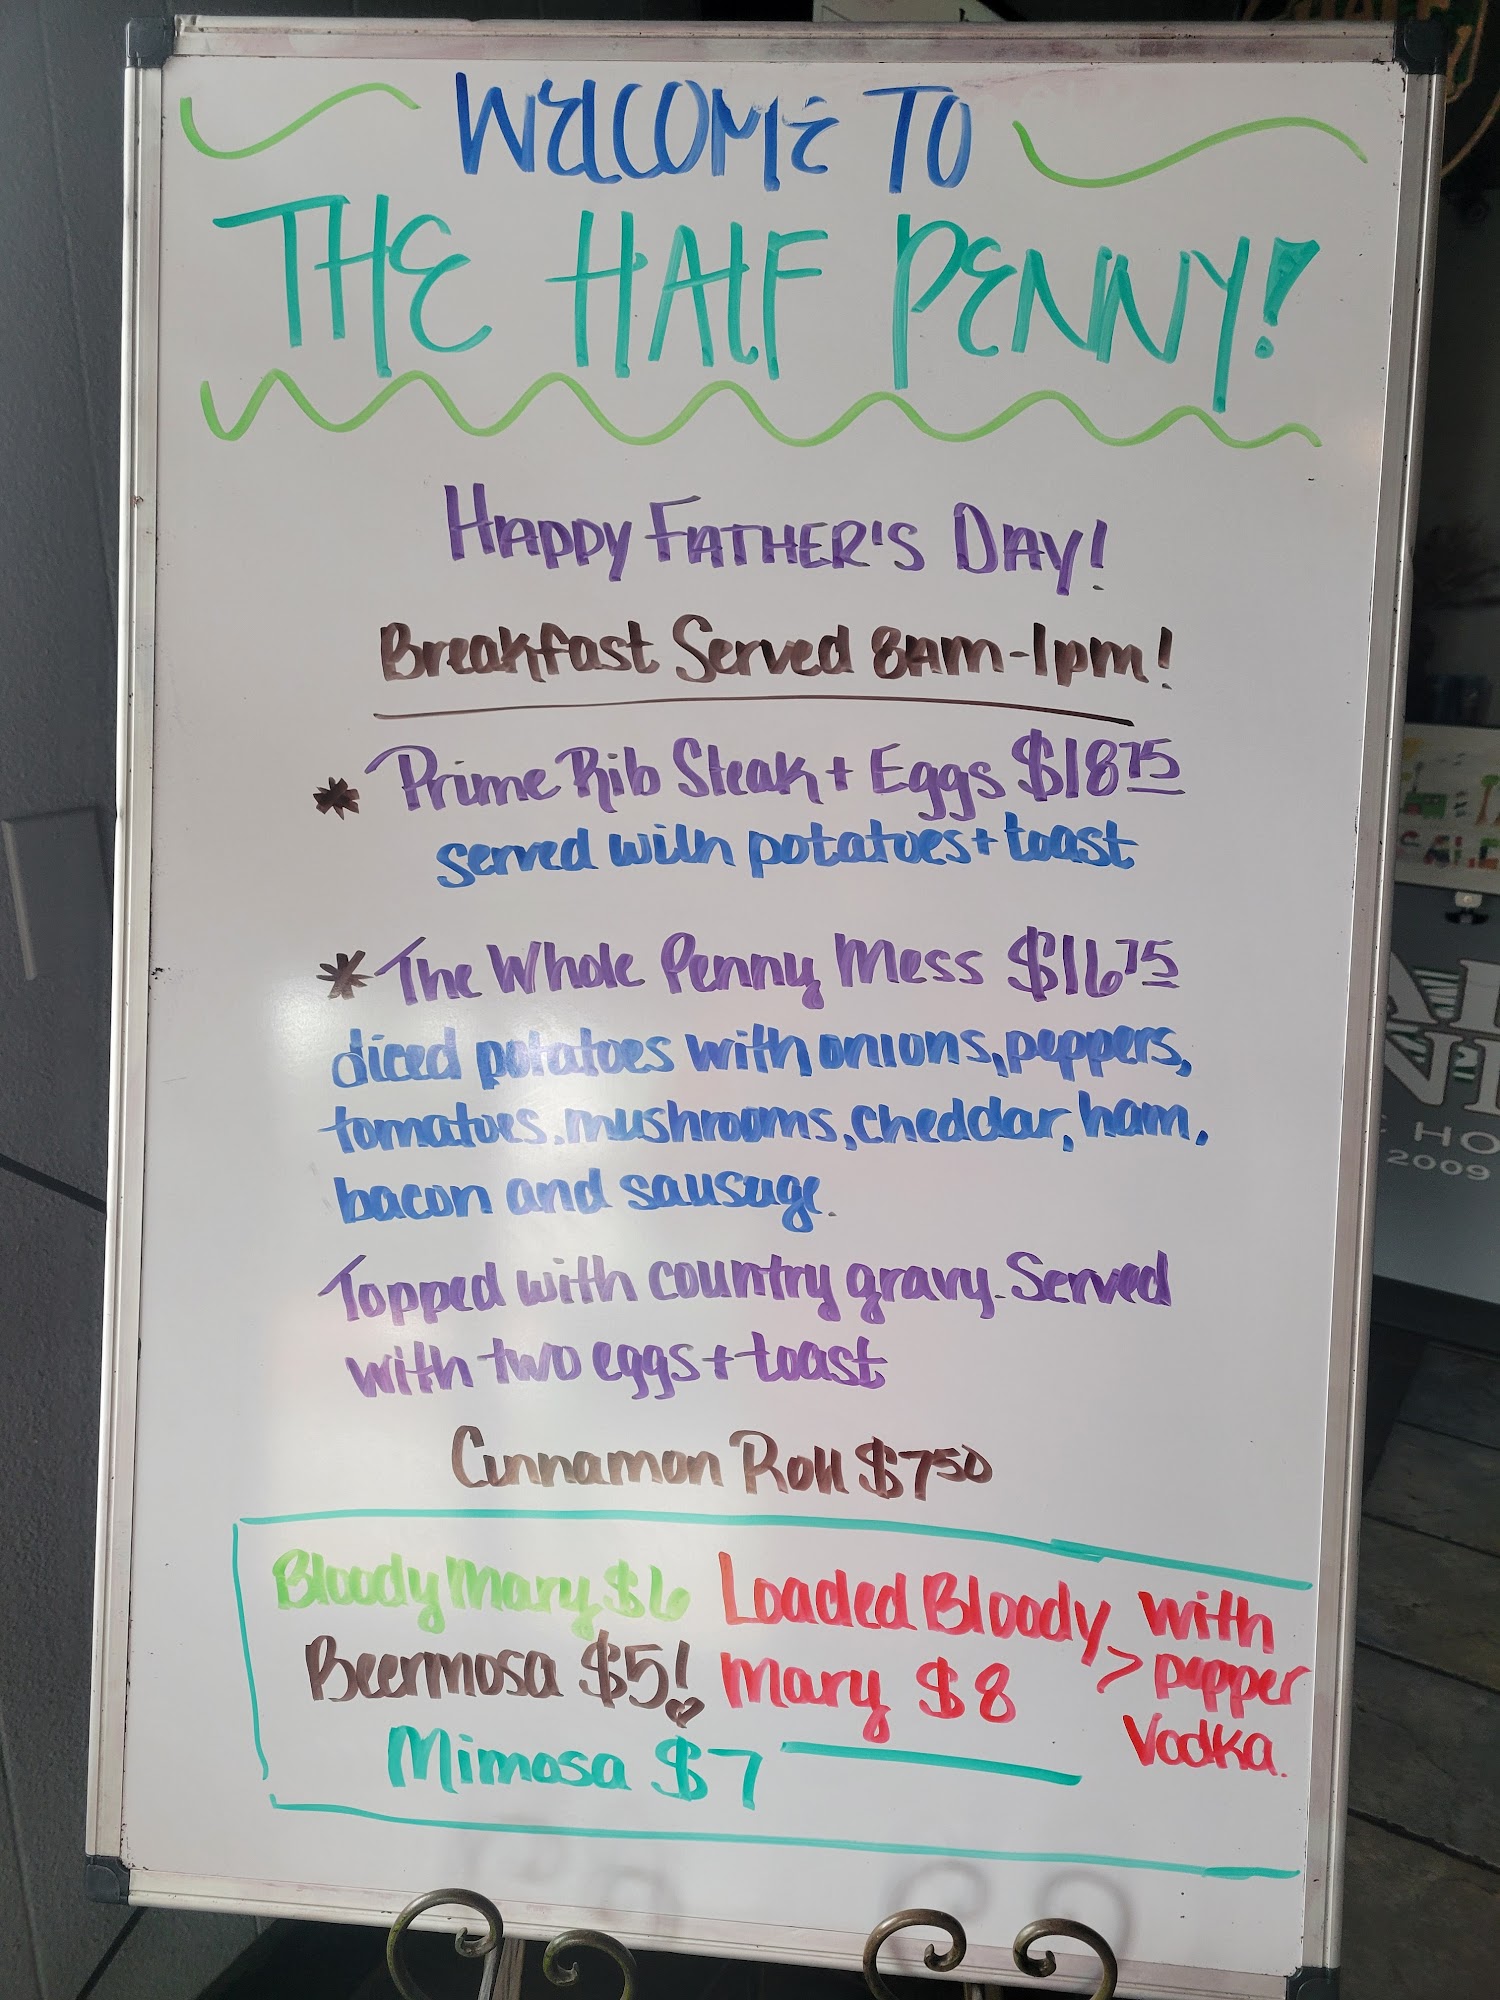 WELCOME TO
THE HALF PENNY!
HAPPY FATHER'S DAY!
Breakfast Served 8AM-1pm!
* Prime Rib Steak + Eggs $18 75
served with potatoes + toast
* The Whole Penny Mess $16 75
diced potatoes with onions, peppers,
tomatoes, mushrooms, cheddar, ham,
bacon and sausage.
Topped with country gravy. Served
with two eggs + toast
Cinnamon Roll $7 50
Bloody Mary $6
Beermosa $5!
Mimosa $7
Loaded Bloody
Mary $8
> with
pepper
Vodka.
HO
2009